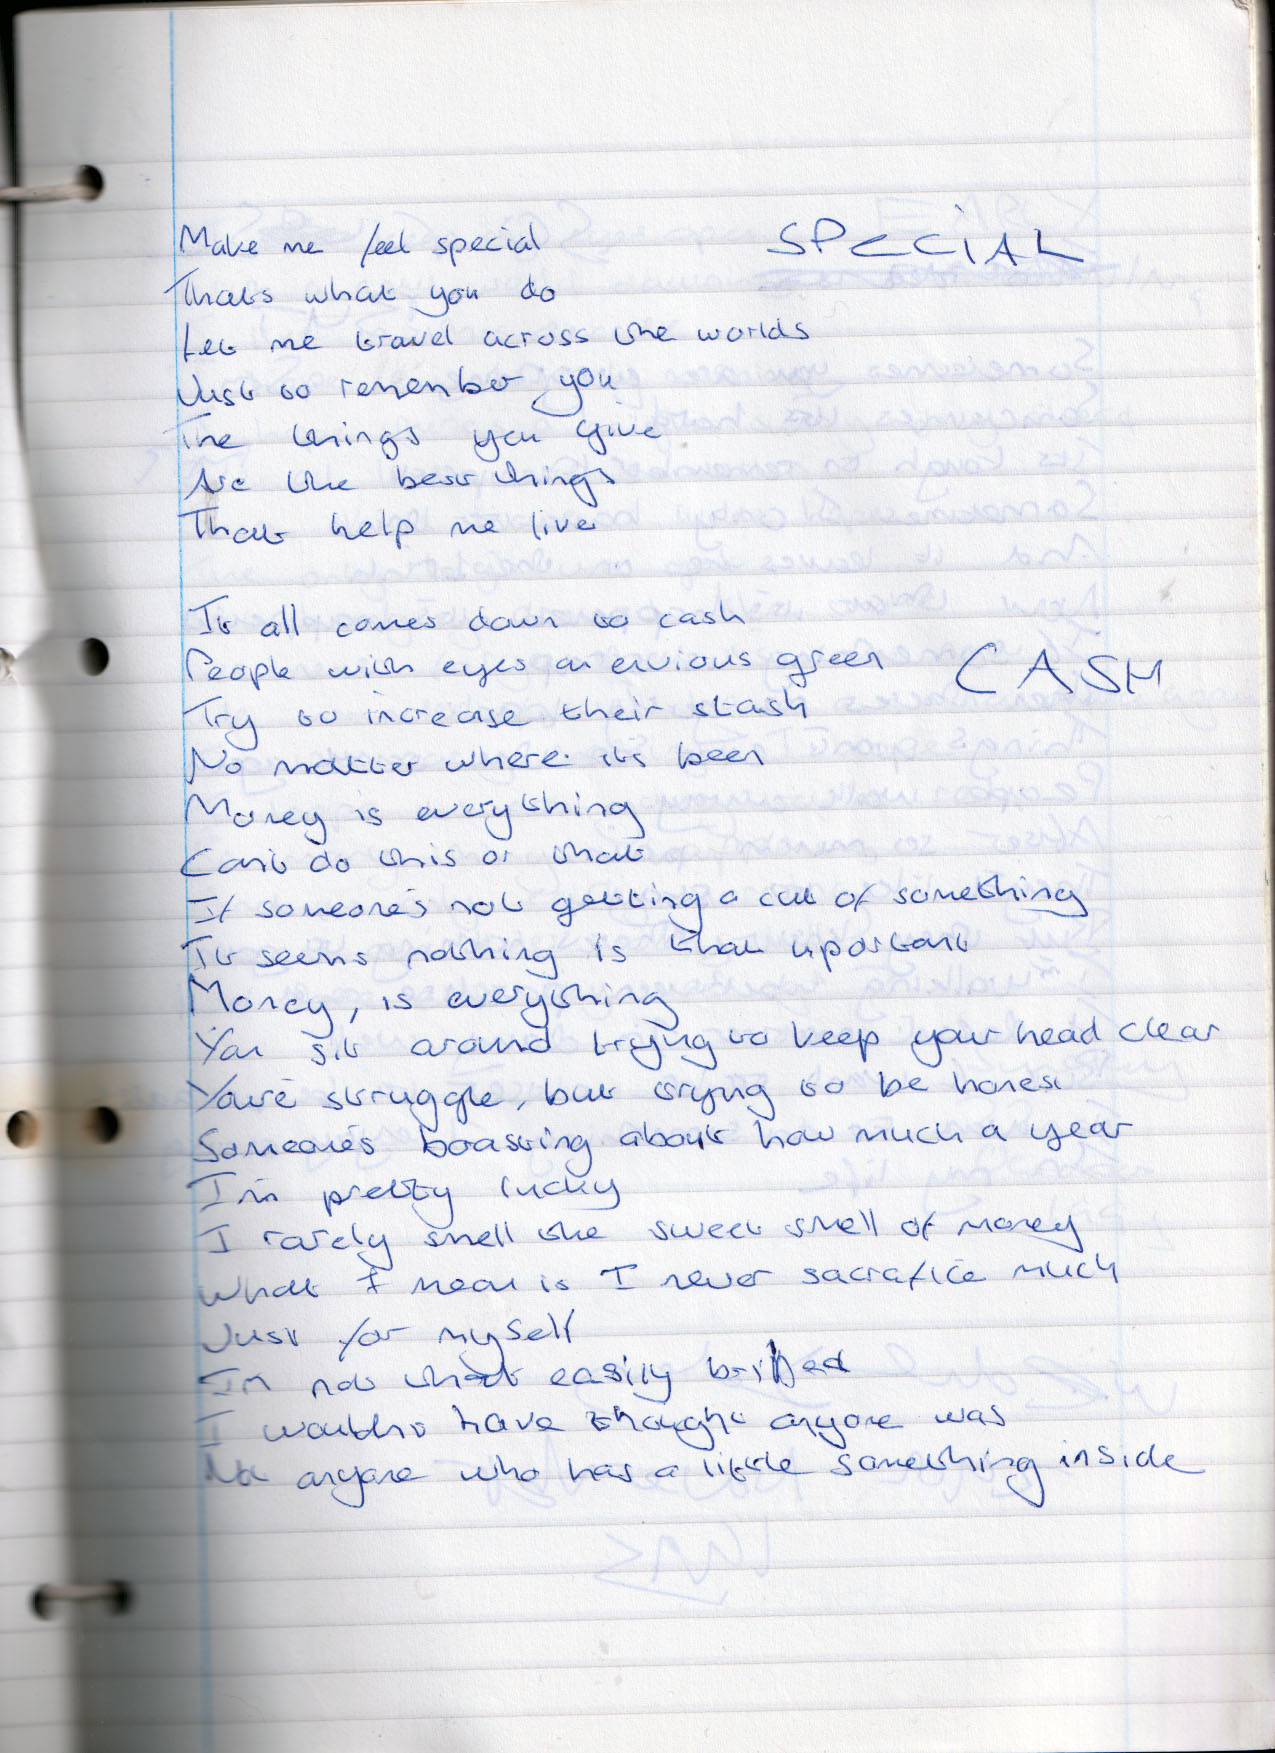 Make me feel special
SPECIAL
Thats what you do
Let me travel across the worlds
Just to remember you
The things you give
Are the best things
That help me live
It all comes down to cash
People with eyes an envious green
CASH
Try to increase their stash
No matter where its been
Money is everything
Cant do this or that
If someone's not getting a cut of something
It seems nothing is that
Money, is everything
You sit around trying to keep your head clear
You're struggle, but trying to be honest
Someone's boasting about how much a year
I'm pretty lucky
I rarely smell the sweet smell of money
What I mean is I never sacrafice much
Just for myself
I'm not that easily
I wouldn't have thought anyone was
anyone who has a little something inside